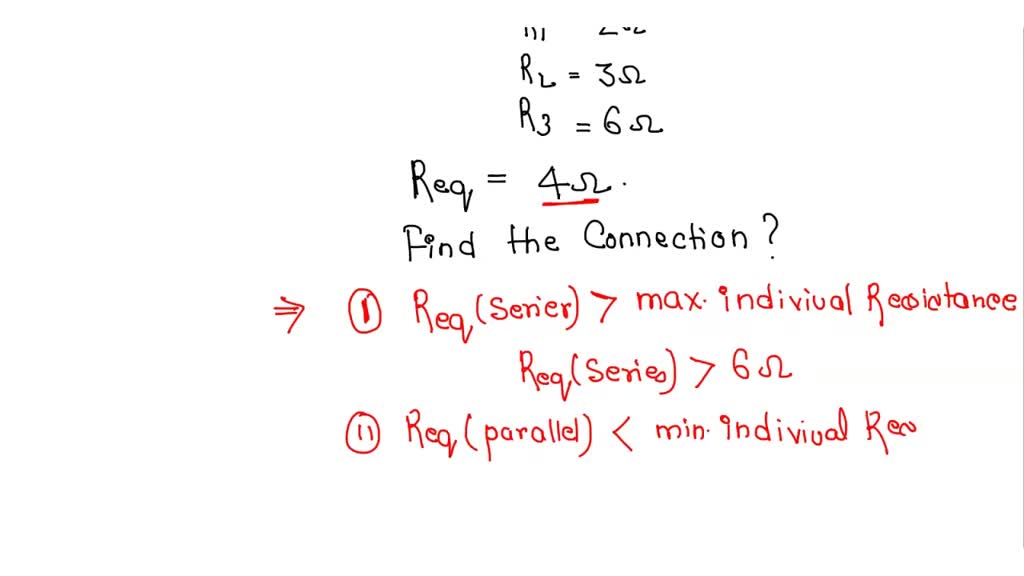 R2 = 3Ω
R3 = 6Ω
Req = 4Ω.
Find the Connection?
⇒ (I) Req (Serier) > max. indiviual Resistance
Req (Series) > 6Ω
(II) Req (parallel) < min. indiviual Res